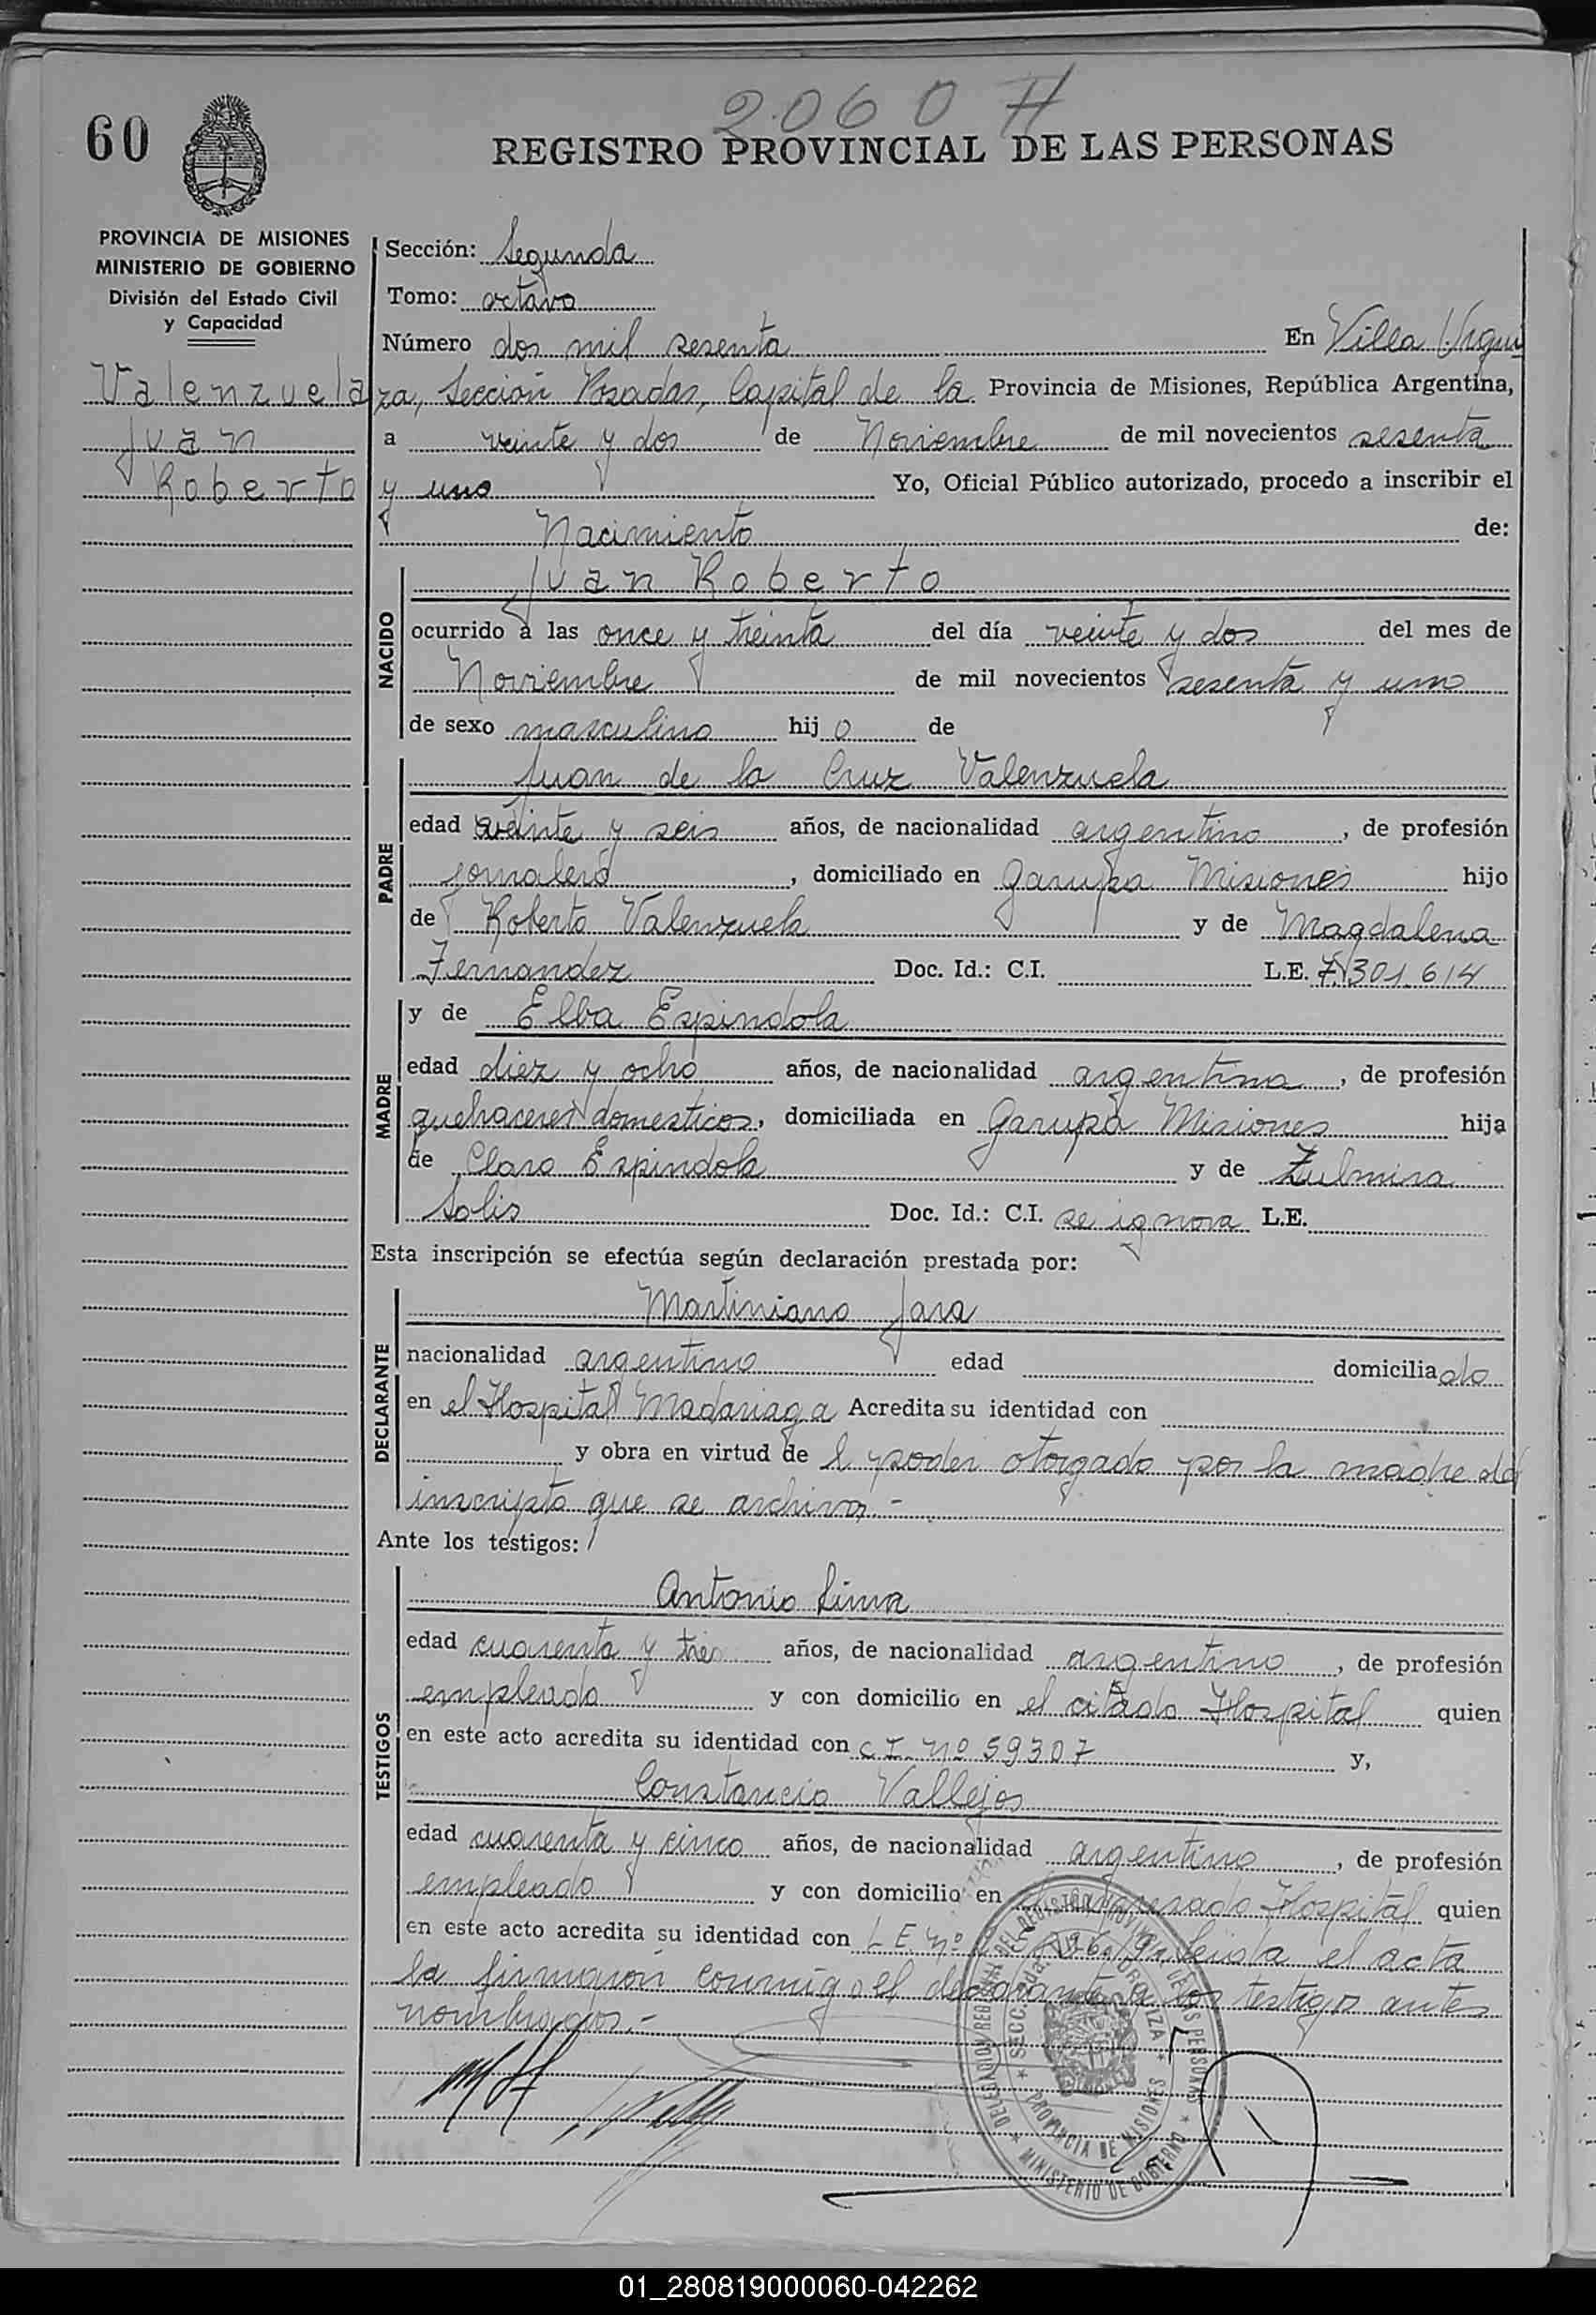 2060 H
60
REGISTRO PROVINCIAL DE LAS PERSONAS
PROVINCIA DE MISIONES
MINISTERIO DE GOBIERNO
División del Estado Civil
y Capacidad
Valenzuela
Juan
Roberto
Sección: Segunda
Tomo: octavo
Número dos mil sesenta En Villa Urqui
za, Sección Posadas, Capital de la Provincia de Misiones, República Argentina,
a veinte y dos de Noviembre de mil novecientos sesenta
y uno Yo, Oficial Público autorizado, procedo a inscribir el
Nacimiento de:
NACIDO
Juan Roberto
ocurrido a las once y treinta del día veinte y dos del mes de
Noviembre de mil novecientos sesenta y uno
de sexo masculino hijo de
PADRE
Juan de la Cruz Valenzuela
edad veinte y seis años, de nacionalidad argentino, de profesión
jornalero, domiciliado en Garupa Misiones hijo
de Roberto Valenzuela y de Magdalena
Fernandez Doc. Id.: C.I. L.E. 7.301.614
MADRE
y de Elba Espindola
edad diez y ocho años, de nacionalidad argentina, de profesión
quehaceres domesticos, domiciliada en Garupá Misiones hija
de Claro Espindola y de Zulmira
Solis Doc. Id.: C.I. se ignora L.E.
Esta inscripción se efectúa según declaración prestada por:
DECLARANTE
Martiniano Jara
nacionalidad argentino edad domiciliado
en el Hospital Madariaga Acredita su identidad con
y obra en virtud de l poder otorgado por la madre del
inscripto que se archiva.-
Ante los testigos:
TESTIGOS
Antonio Lima
edad cuarenta y tres años, de nacionalidad argentino, de profesión
empleado y con domicilio en el citado Hospital quien
en este acto acredita su identidad con C.I. Nº 59307 y,
Constancio Vallejos
edad cuarenta y cinco años, de nacionalidad argentino, de profesión
empleado y con domicilio en Hospital quien
en este acto acredita su identidad con L.E. Nº Leída el acta
la firmaron conmigo el declarante y los testigos antes
nombrados.-
DELEGACION REGIONAL DEL REGISTRO PROVINCIAL DE LAS PERSONAS
SECC. 2da. URQUIZA
PROVINCIA DE MISIONES
MINISTERIO DE GOBIERNO
01_280819000060-042262